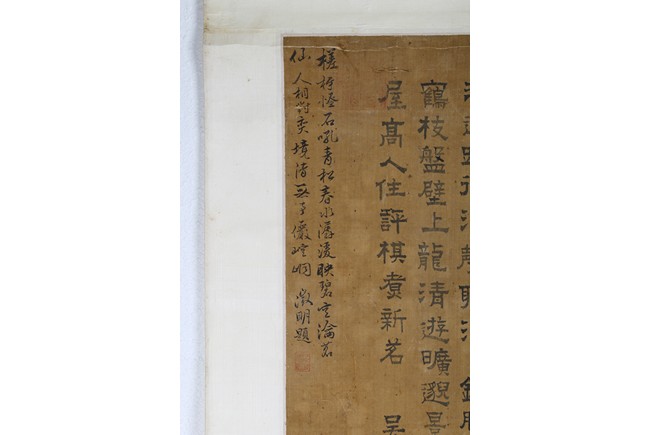 鶴枝盤壁上龍清遊曠邈
屋高人住評棋煮新茗 吳
槎枒怪石吼青松春水潺湲映碧空瀹茗
仙人相對奕境清無事儼崆峒 徵明題